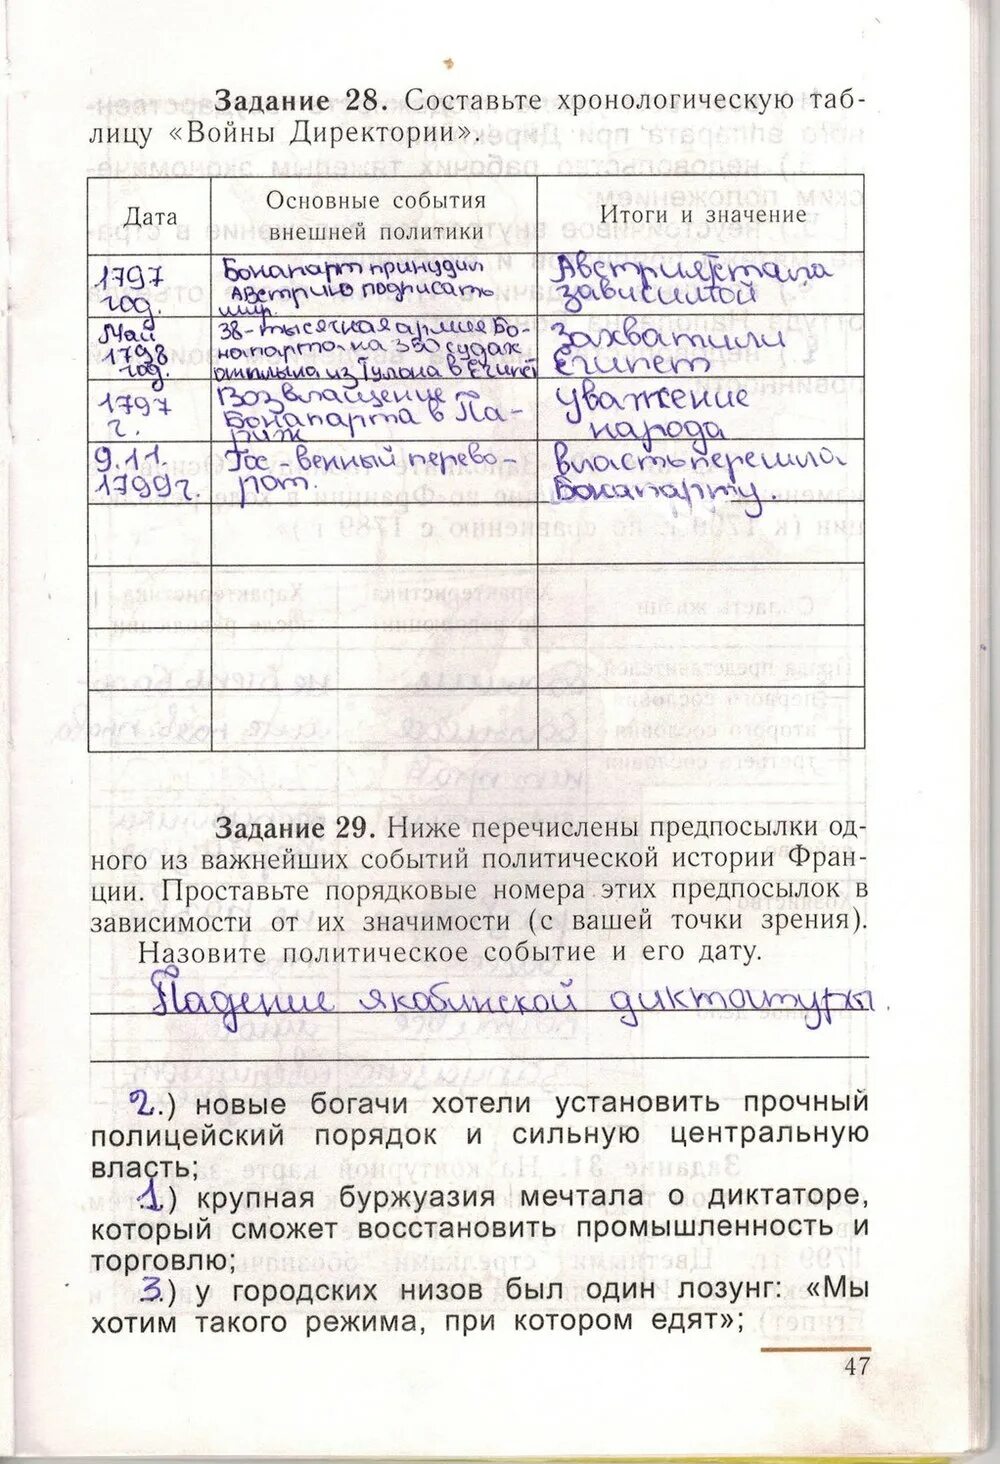 Задание 28. Составьте хронологическую таб-
лицу «Войны Директории».
Дата
Основные события
внешней политики
Итоги и значение
1797
год.
Бонапарт принудил
Австрию подписать
мир.
Австрия стала
зависимой
Май
1798
год.
38-тысячная армия Бо-
напарта на 350 судах
отплыла из Тулона в Египет
Захватили
Египет
1797
г.
Возвлащение
Бонапарта в Па-
риж
Уважение
народа
9.11.
1799г.
Гос-венный перево-
рот.
власть перешла
Бонапарту.
Задание 29. Ниже перечислены предпосылки од-
ного из важнейших событий политической истории Фран-
ции. Проставьте порядковые номера этих предпосылок в
зависимости от их значимости (с вашей точки зрения).
Назовите политическое событие и его дату.
Падение якобинской диктатуры.
2.) новые богачи хотели установить прочный
полицейский порядок и сильную центральную
власть;
1.) крупная буржуазия мечтала о диктаторе,
который сможет восстановить промышленность и
торговлю;
3.) у городских низов был один лозунг: «Мы
хотим такого режима, при котором едят»;
47